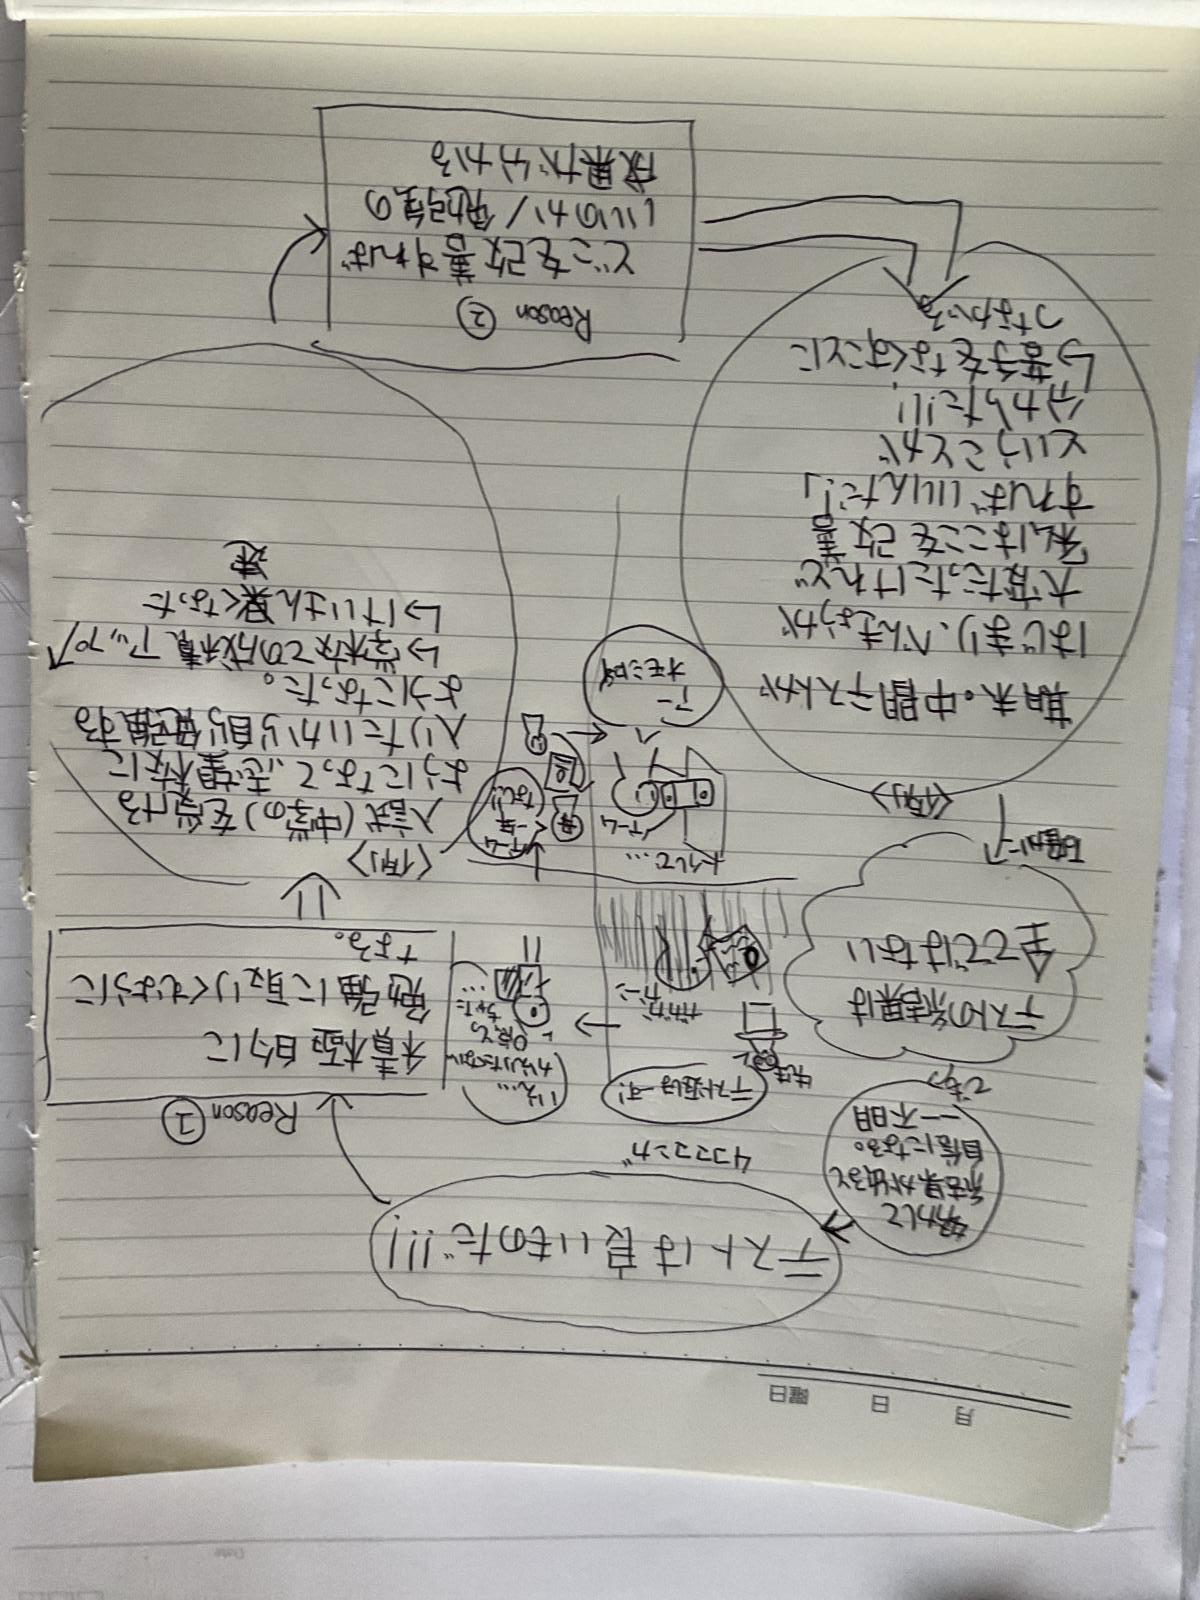 月 日 曜日
テストは良いものだ!!!
努力して
結果が出ると
自信になる。
一不明
でも?
テストの結果は
全てではない
確かに
〈例〉
期末。中間テストが
はじまり、べんきょうが
大変だったけれど
「私はここを改善
すればいいんだ!」
ということが
分かった!!!
↳苦手をなくすことに
つながる
Reason ②
どこを改善すれば
いいのか/勉強の
成果が分かる
Reason ①
積極的に
勉強に取りくむように
なる。
〈例〉
入試(中学の)を受ける
ようになって、志望校に
入りたいから自ら勉強する
ようになった。
↳学校での成績アップ↗
↳けいさん速くなった
速
4コママンガ
テスト返しまーす!
先生
ガガガーン
いえ…
0点とっ
ちゃた
…
そして…
ゲーム
ゲーム
一生
なし!!
母